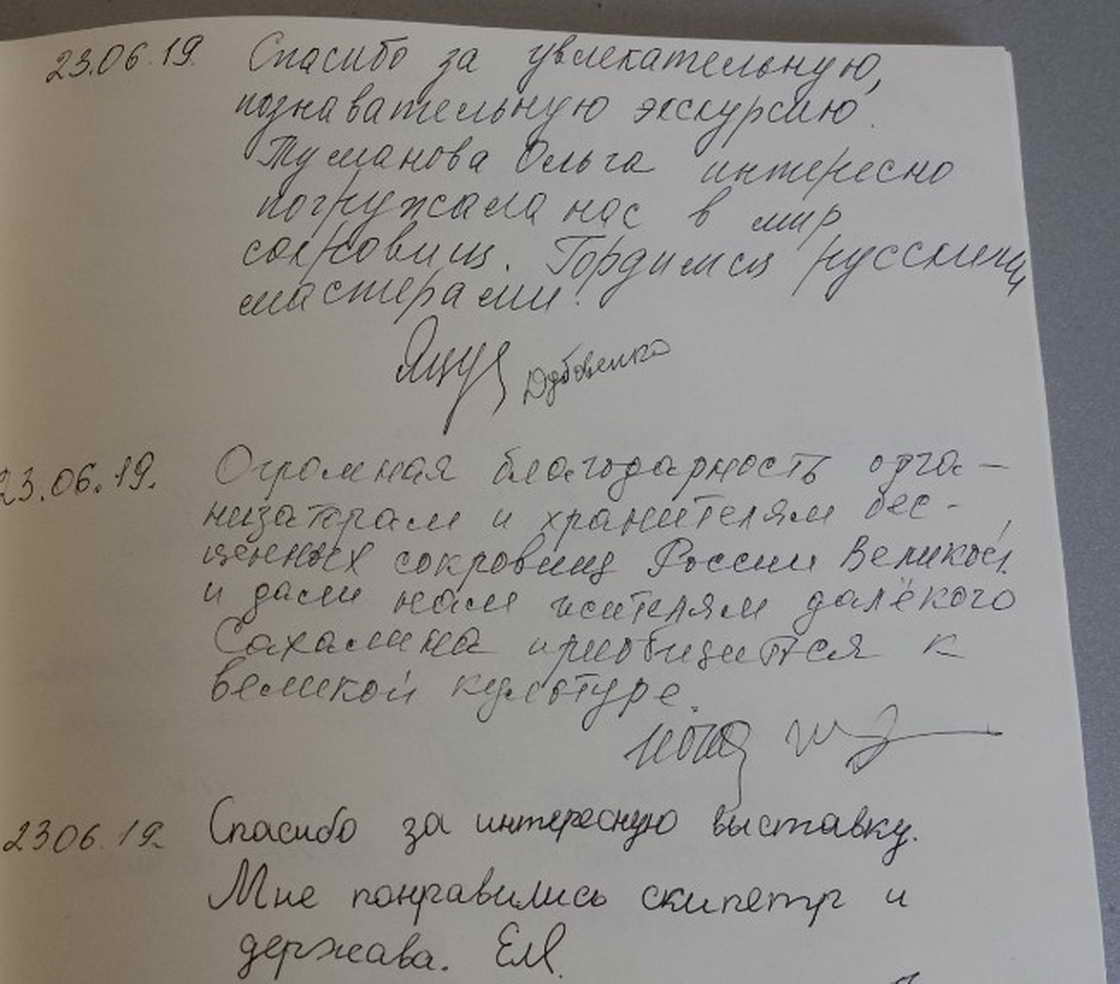 23.06.19. Спасибо за увлекательную,
познавательную экскурсию.
Туманова Ольга интересно
погружала нас в мир
сокровищ. Гордимся русскими
мастерами!
Дубовенко
23.06.19. Огромная благодарность орга-
низаторам и хранителям бес-
ценных сокровищ России Великой,
и дали нам жителям далёкого
Сахалина приобщится к
великой культуре.
23.06.19. Спасибо за интересную выставку.
Мне понравились скипетр и
держава. ЕМ.